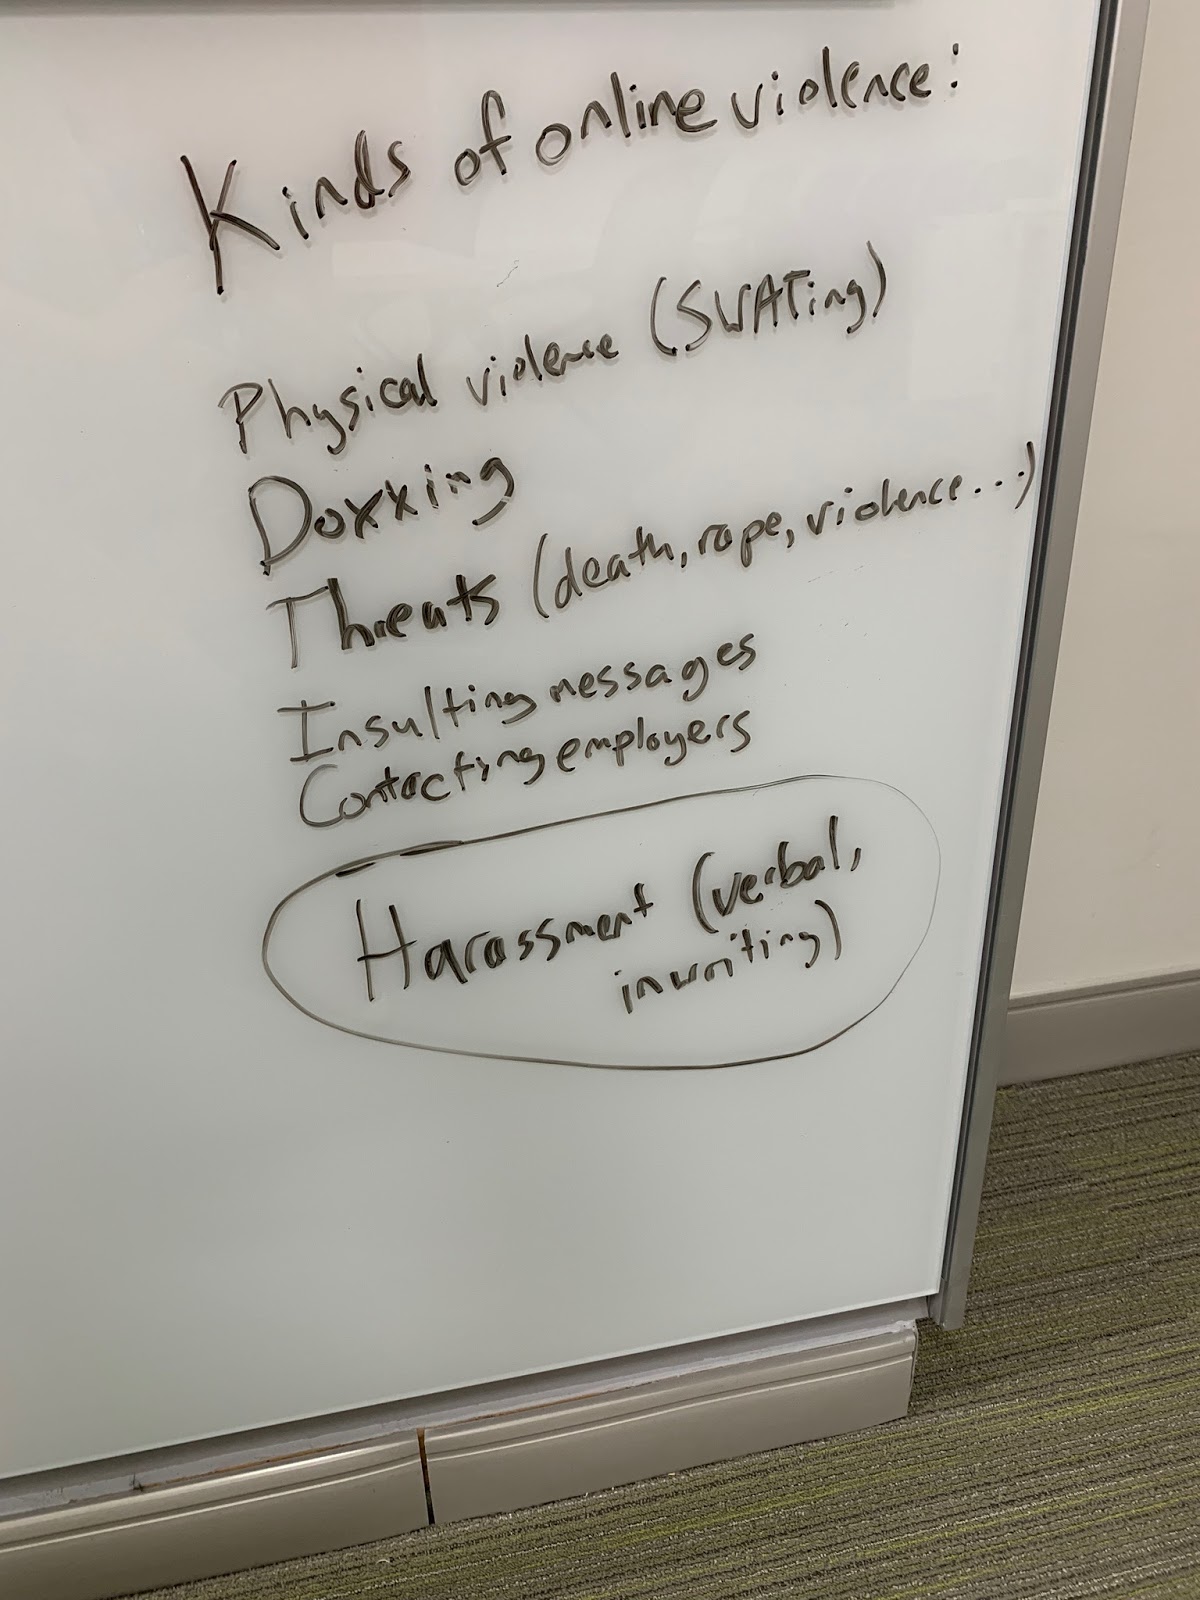 Kinds of online violence:
Physical violence (SWATing)
Doxxing
Threats (death, rape, violence...)
Insulting messages
Contacting employers
Harassment (verbal,
in writing)